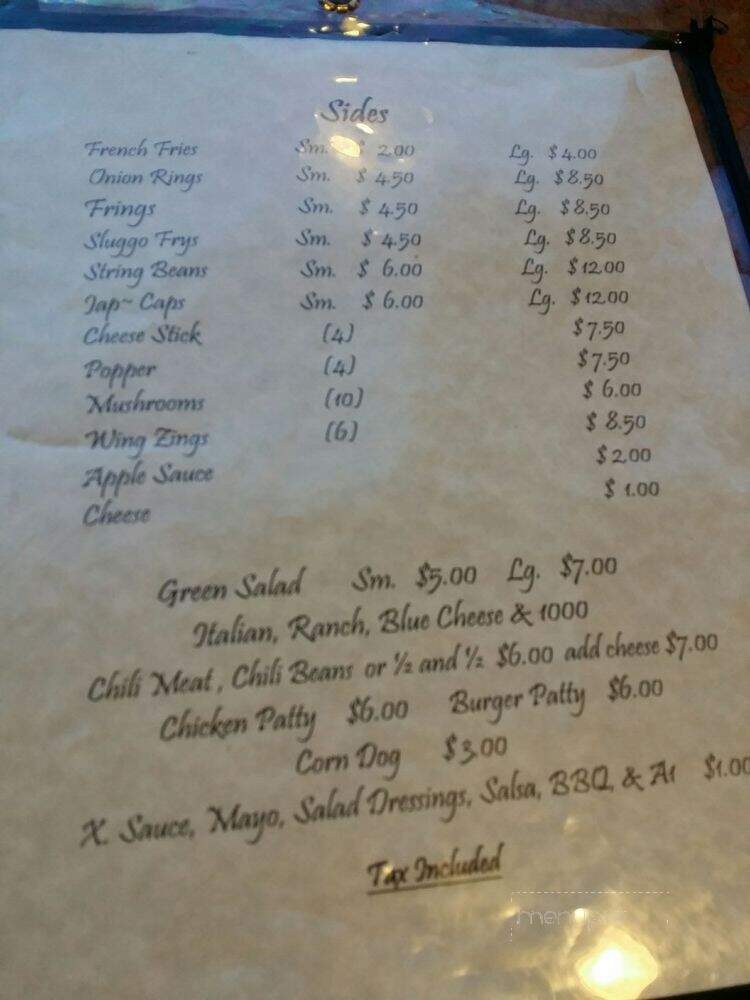 Sides
French Fries Sm. $ 2.00 Lg. $4.00
Onion Rings Sm. $ 4.50 Lg. $8.50
Frings Sm. $ 4.50 Lg. $8.50
Sluggo Frys Sm. $ 4.50 Lg. $8.50
String Beans Sm. $ 6.00 Lg. $12.00
Jap~ Caps Sm. $ 6.00 Lg. $12.00
Cheese Stick (4) $7.50
Popper (4) $7.50
Mushrooms (10) $ 6.00
Wing Zings (6) $ 8.50
Apple Sauce $2.00
Cheese $ 1.00
Green Salad Sm. $5.00 Lg. $7.00
Italian, Ranch, Blue Cheese & 1000
Chili Meat, Chili Beans or ½ and ½ $6.00 add cheese $7.00
Chicken Patty $6.00 Burger Patty $6.00
Corn Dog $3.00
X. Sauce, Mayo, Salad Dressings, Salsa, BBQ, & A1 $1.00
Tax Included